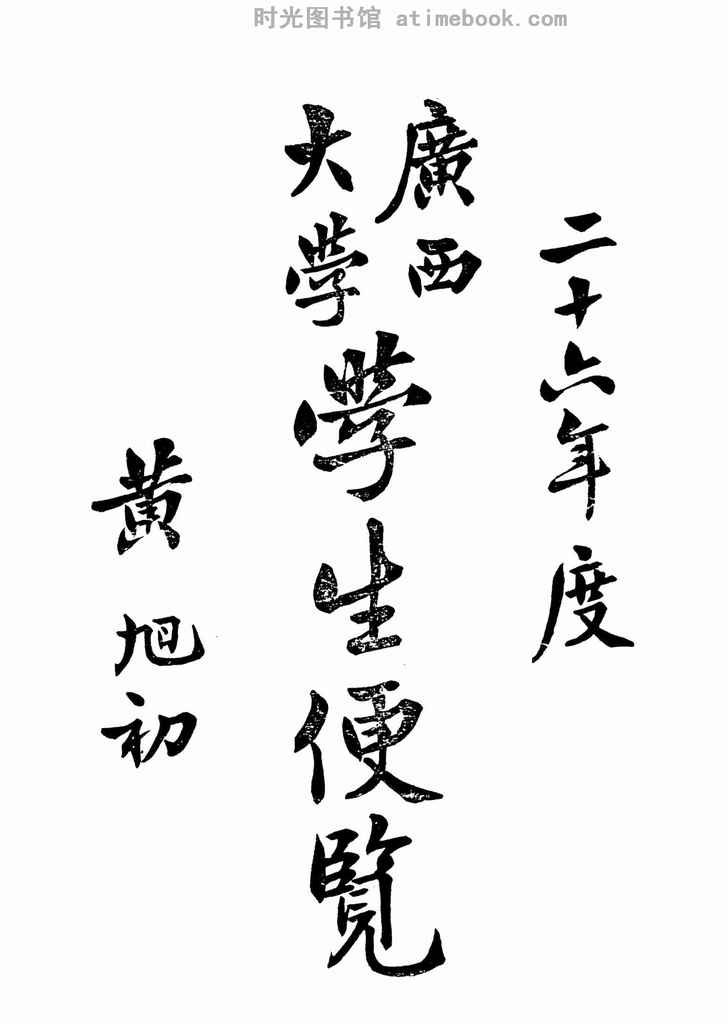 时光图书馆 atimebook.com
二十六年度
廣西
大學
學生便覽
黃旭初